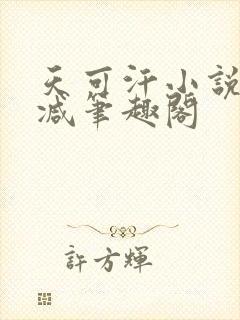 天可汗小說
減筆趣閣
許方輝